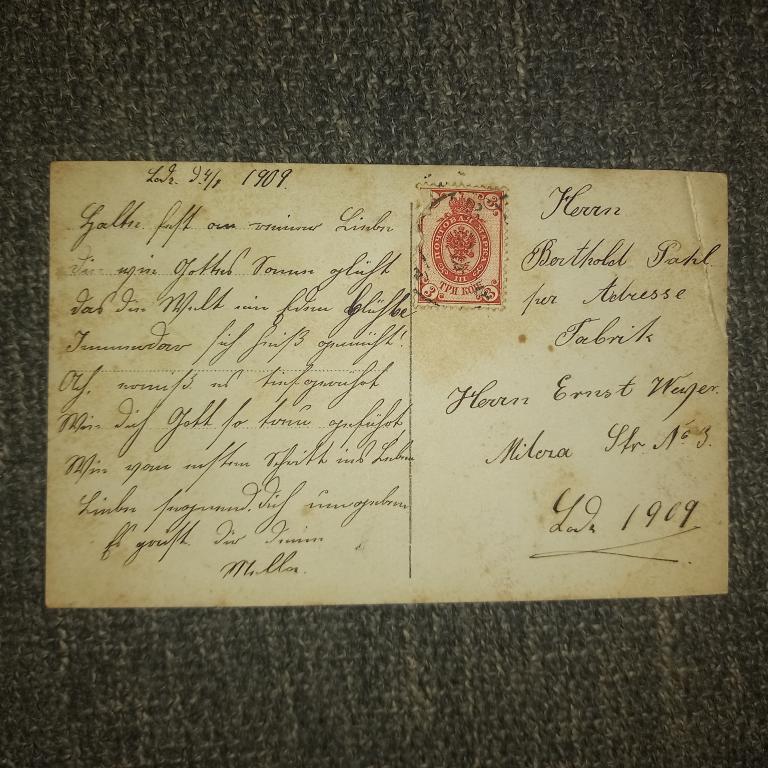 Lodz. d. 4/8 1909.
Halte fest an meiner Liebe
die wie Gottes Sonne glüht
das die Welt ein Eden blühte
Immerdar sich heiß gemüht.
Ach, tief gerührt
Wie dich Gott so treu geführt
Wie vom ersten Schritt ins Leben
Liebe segnend dich umgeben
Es grüßt dir deine
Mella.
ПОЧТОВАЯ МАРКА
3
ТРИ КОП.
Herrn
Berthold Pahl
per Adresse
Fabrik
Herrn Ernst Weyer.
Milcza Str. No 3.
Lodz 1909